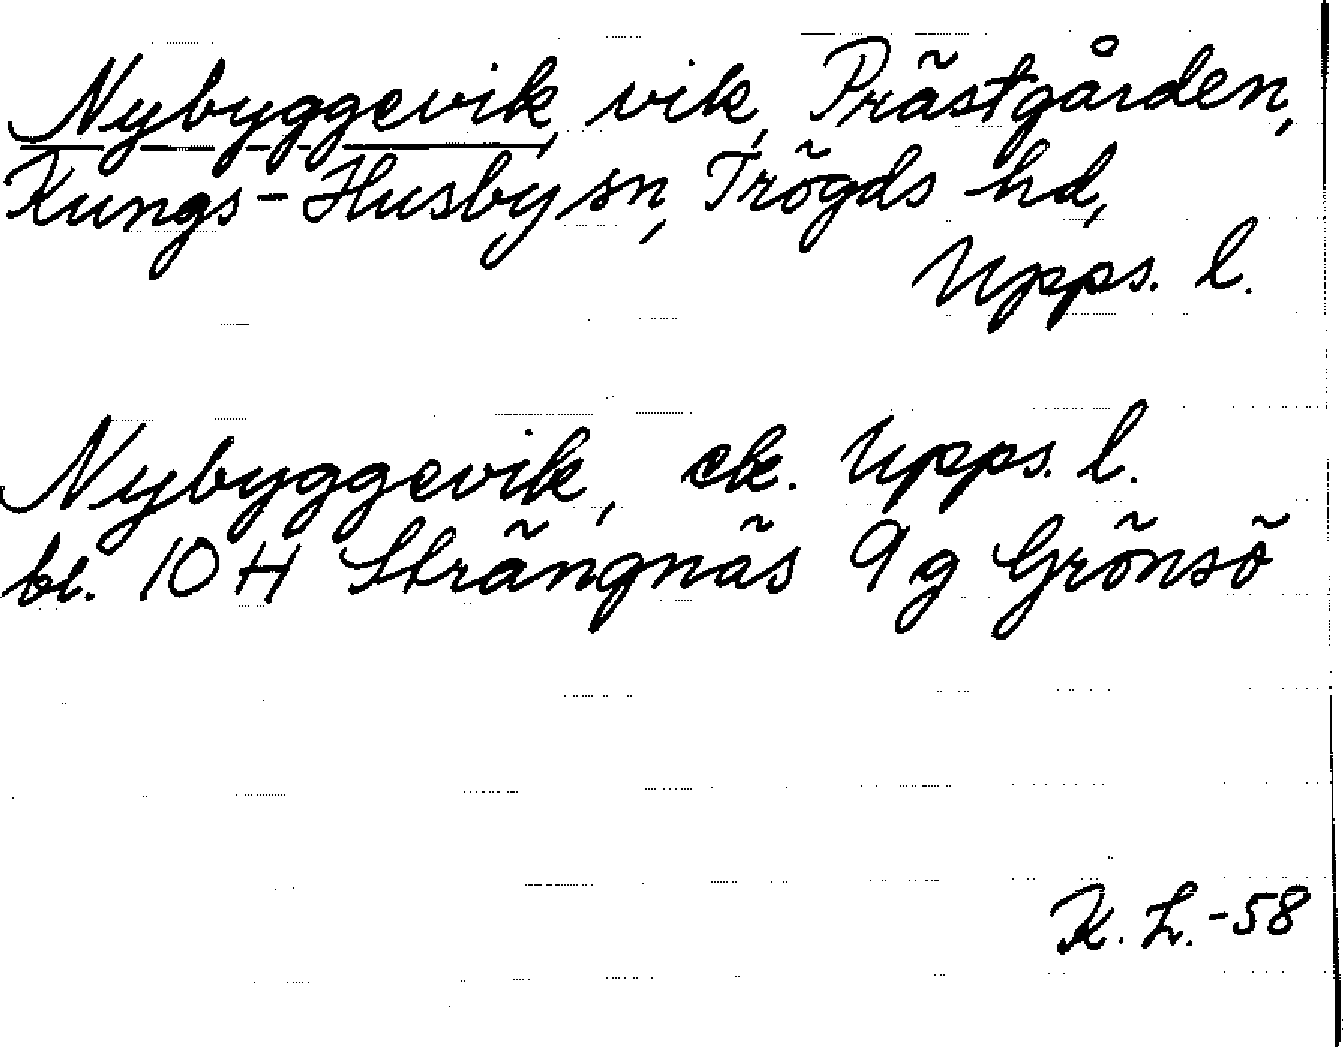 Nybyggevik, vik, Prästgården,
Kungs-Husby sn, Trögds hd,
Upps. l.
Nybyggevik, ek. Upps. l.
bl. 10 H Strängnäs 9 g Grönsö
K. L. -58